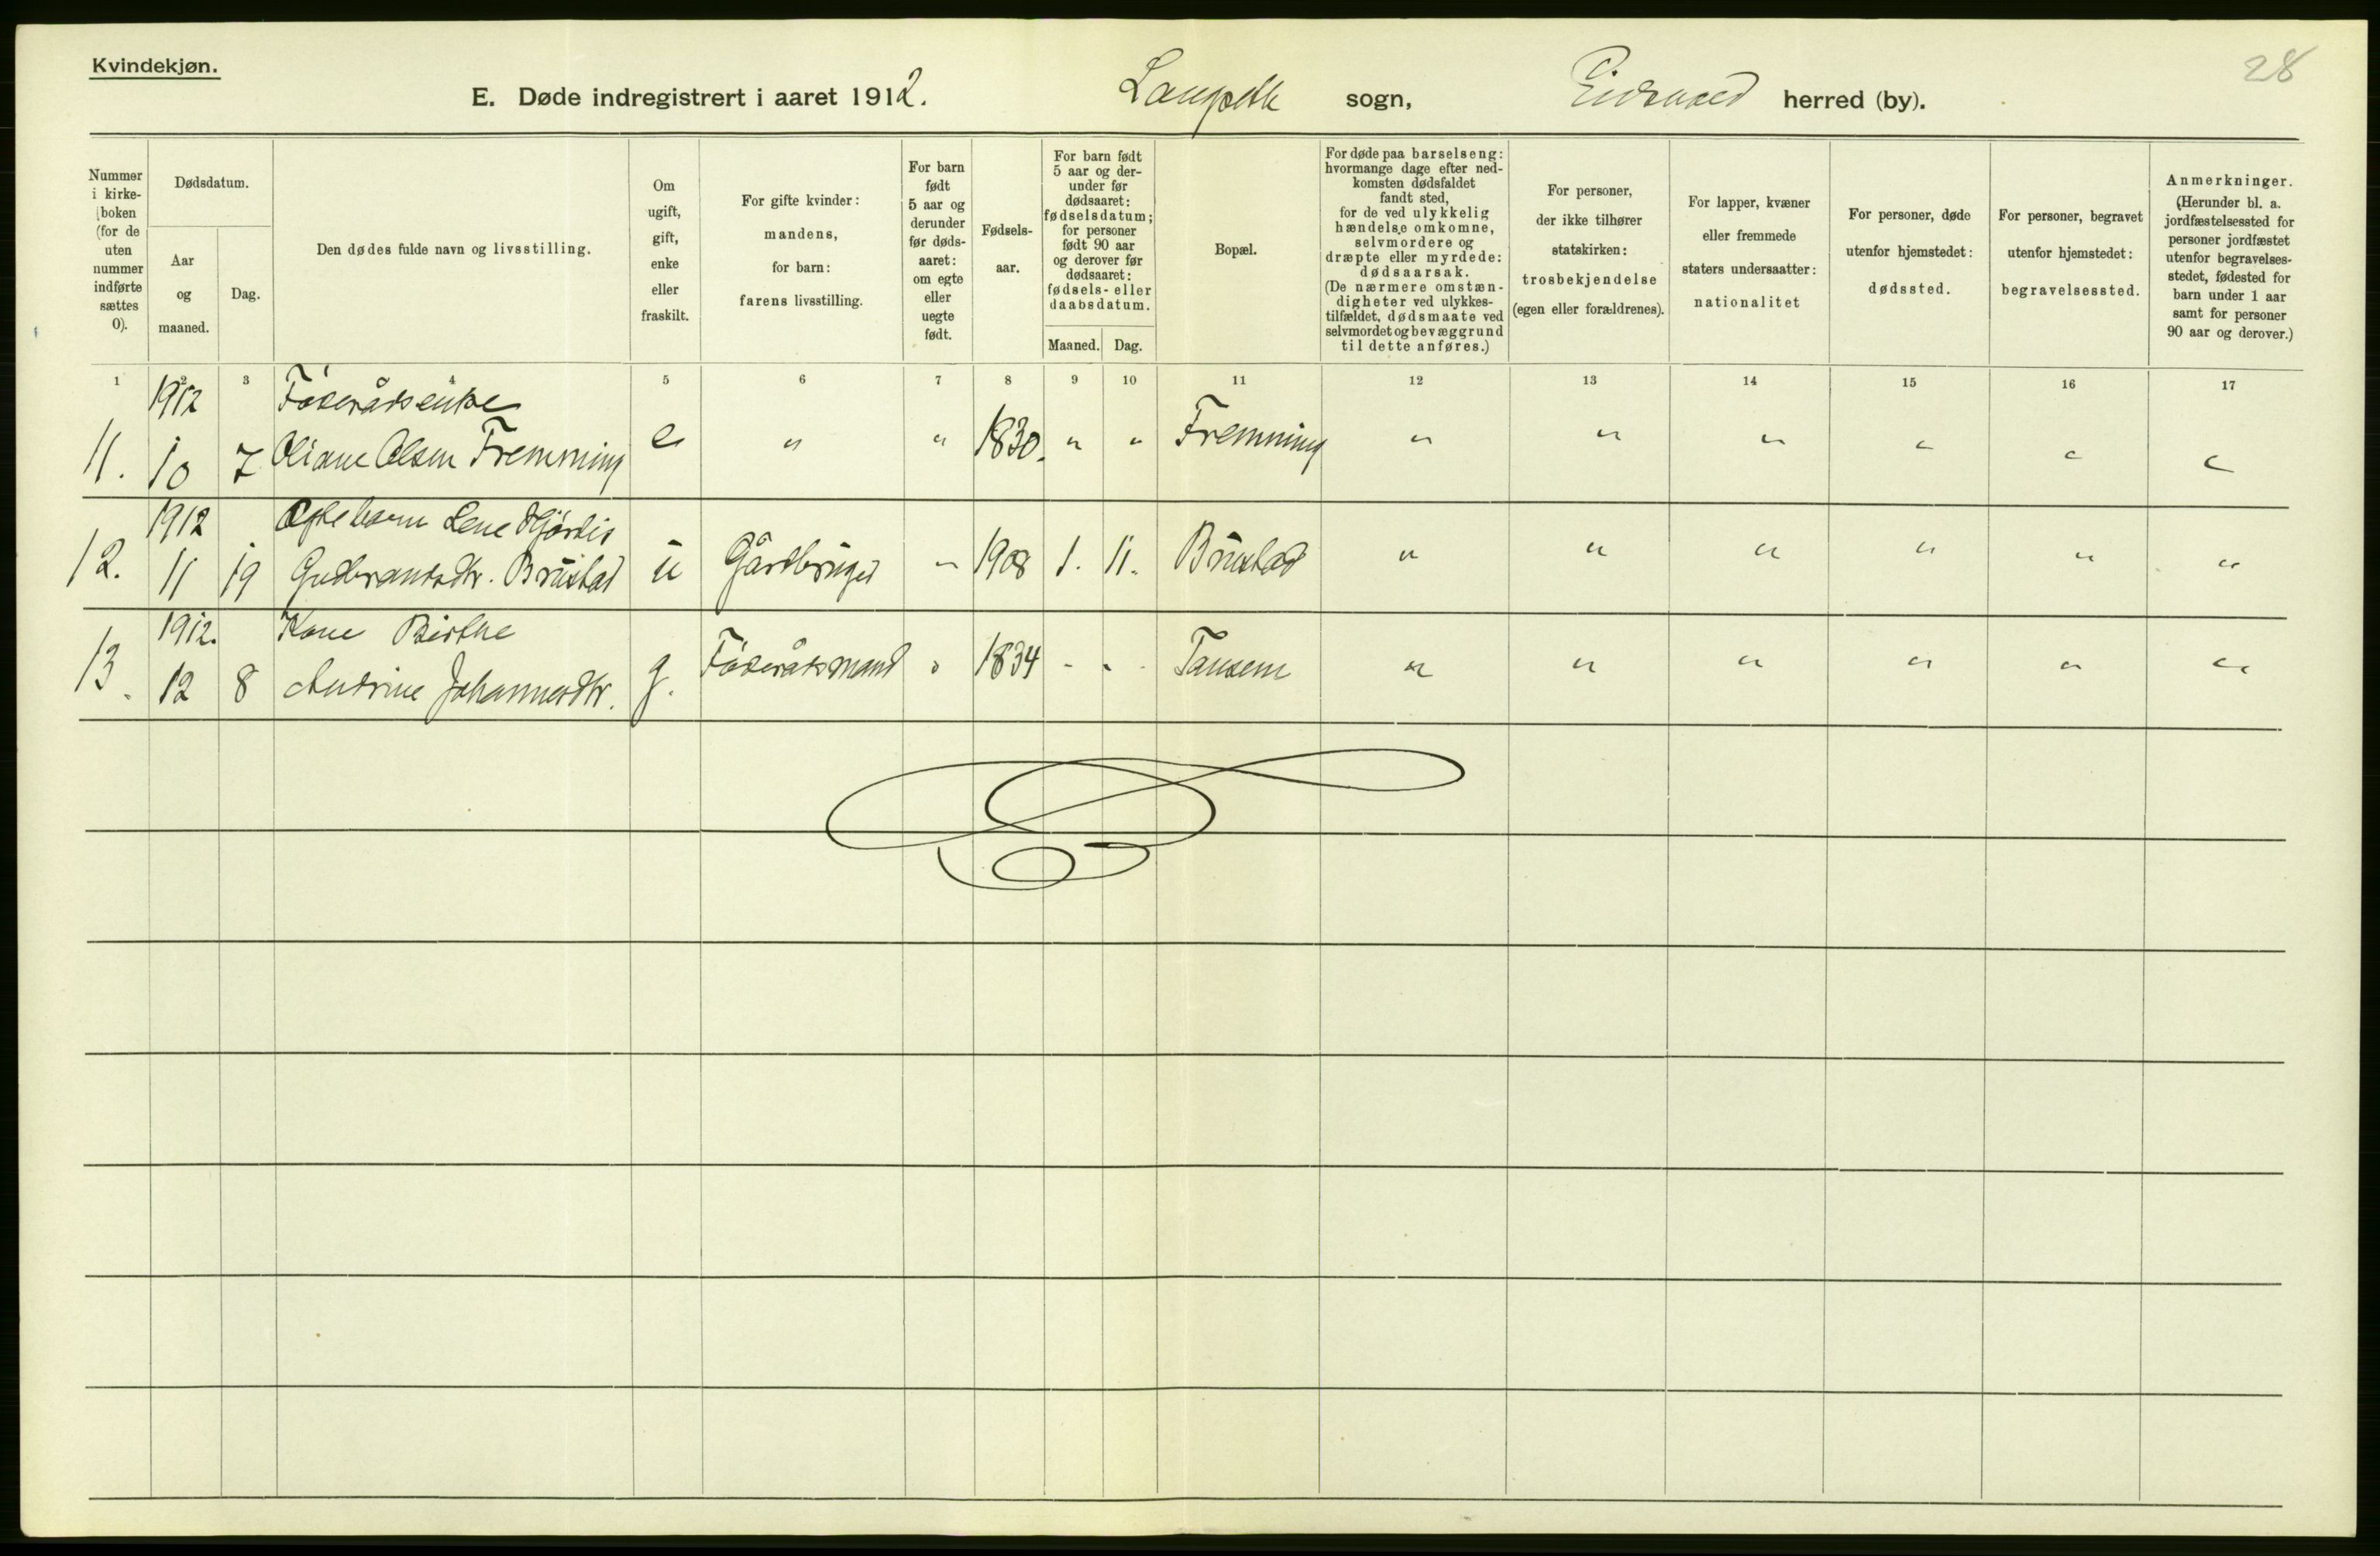 Kvindekjøn.
28
E. Døde indregistrert i aaret 1912. Langseth sogn, Eidsvold herred (by).
Nummer i kirkeboken (for de uten nummer indførte sættes 0).
Dødsdatum.
Aar og maaned.
Dag.
Den dødes fulde navn og livsstilling.
Om ugift, gift, enke eller fraskilt.
For gifte kvinder: mandens, for barn: farens livsstilling.
For barn født 5 aar og derunder før dødsaaret: om egte eller uegte født.
Fødselsaar.
For barn født 5 aar og derunder før dødsaaret: fødselsdatum; for personer født 90 aar og derover før dødsaaret: fødsels- eller daabsdatum.
Maaned. Dag.
Bopæl.
For døde paa barselseng: hvormange dage efter nedkomsten dødsfaldet fandt sted, for de ved ulykkelig hændelse omkomne, selvmordere og dræpte eller myrdede: dødsaarsak. (De nærmere omstændigheter ved ulykkestilfældet, dødsmaate ved selvmordet og bevæggrund til dette anføres.)
For personer, der ikke tilhører statskirken: trosbekjendelse (egen eller forældrenes).
For lapper, kvæner eller fremmede staters undersaatter: nationalitet
For personer, døde utenfor hjemstedet: dødssted.
For personer, begravet utenfor hjemstedet: begravelsessted.
Anmerkninger. (Herunder bl. a. jordfæstelsessted for personer jordfæstet utenfor begravelsesstedet, fødested for barn under 1 aar samt for personer 90 aar og derover.)
1 2 3 4 5 6 7 8 9 10 11 12 13 14 15 16 17
1912 Föderådsenke
11. 10 7 Oliane Olsen Fremming e " " 1830. " " Fremming " " " " " "
1912 Ægtebarn Lene Hjördis
12. 11 19 Gudbrandsdtr. Brustad u Gårdbruger " 1908 1. 11. Brustad " " " " " "
1912. Kone Birthe
13. 12 8 Andrine Johannesdtr. g. Föderådsmand " 1834 " " Tansem " " " " " "